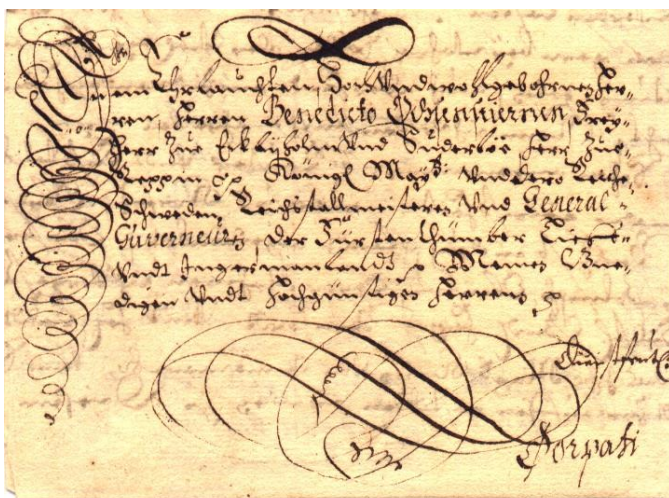 Dem Ehrlauchten, Hoch Vnd wohlgebohrnen Her-
ren, Herren Benedicto Ochsenstiernen, Frey-
Herr Zue Ekebyholm Vnd Süderböe Herr Zue
Königl. May: Vnd dero Reiche
Schweden, Reichstallmeisteren Vnd General-
Guverneurn der Fürstenthümber Lieff-
Vndt Ingermanlandt Meinen Gne-
digen Vndt Hochgünstigen Herrens
Dorpati